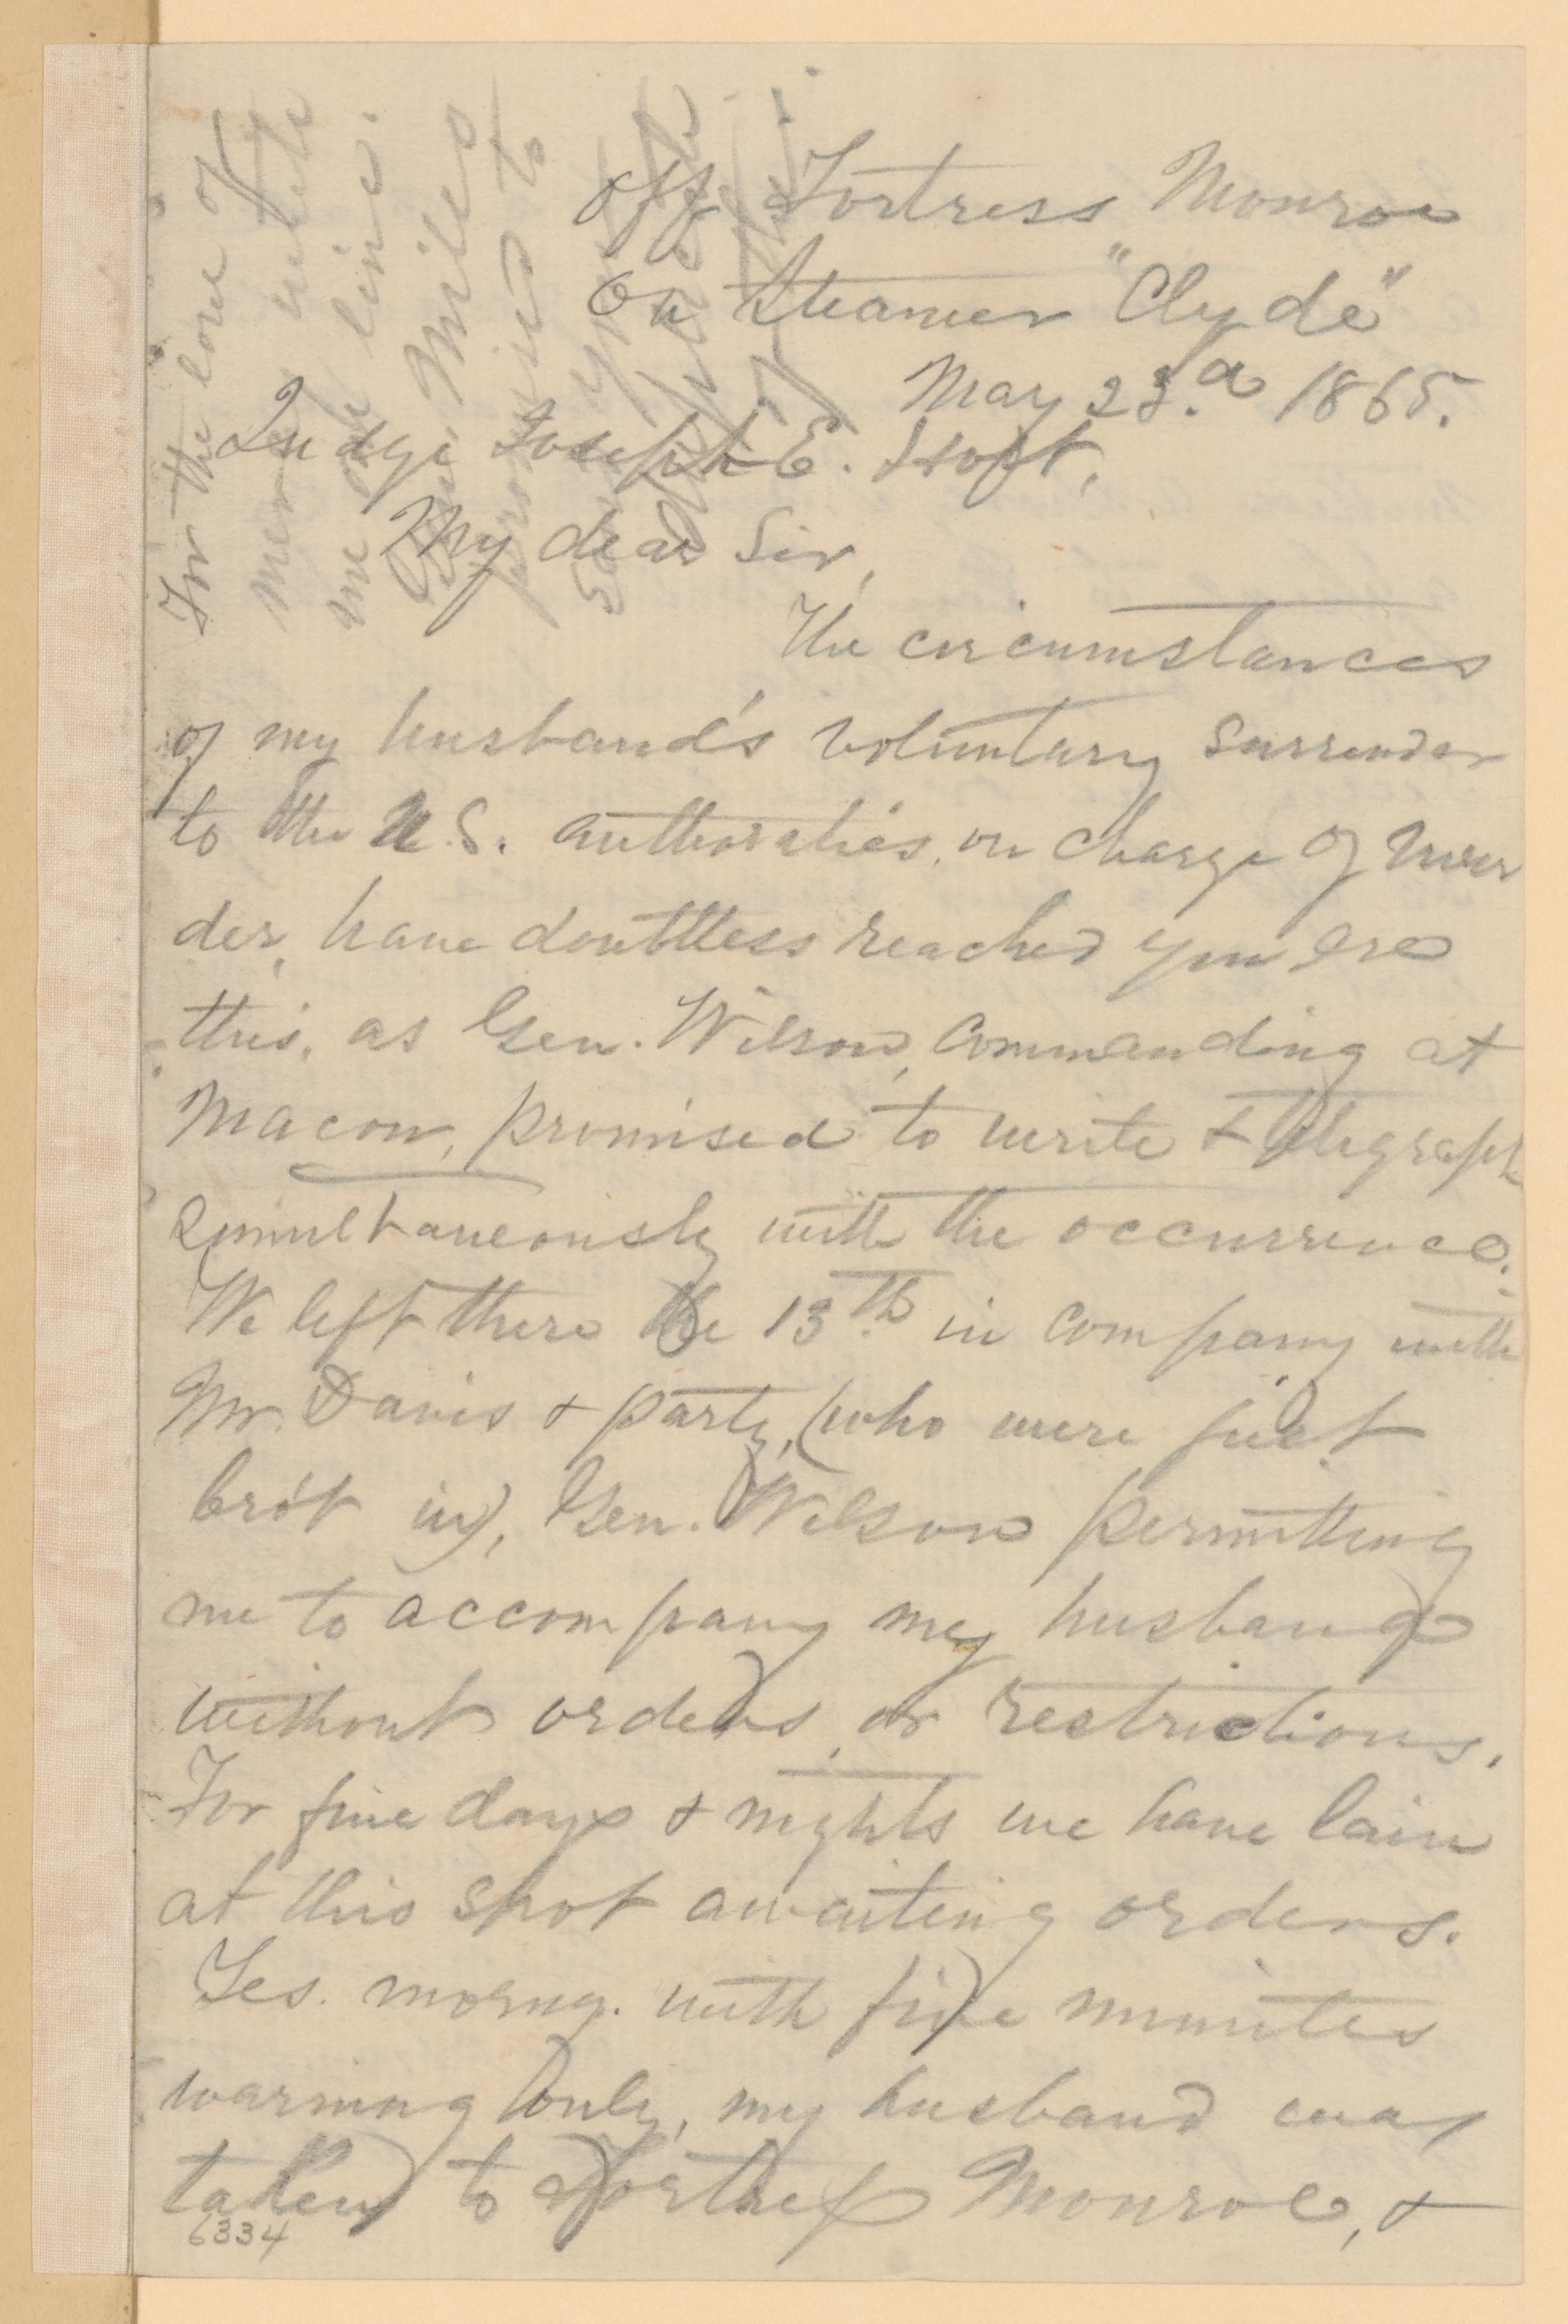 Off Fortress Monroe
On Steamer "Clyde"
May 23.d 1865.
Judge Joseph E. Holt,
My dear Sir,
The circumstances
of my husband's voluntary surrender
to the U.S. authorities, on charge of mur
der, have doubtless reached you ere
this, as Gen. Wilson, commanding at
Macon, promised to write & telegraph
simultaneously with the occurrence.
We left there the 13th in company with
Mr. Davis & party, (who were just
bro't in), Gen. Wilson permitting
me to accompany my husband
without orders, or restrictions.
For five days & nights we have lain
at this spot awaiting orders.
Yes. morng. with five minutes
warning only, my husband was
taken to Fortress Monroe, &
6334
For the love of
mercy write
me one line.
Gen. Miles
promised to
send you